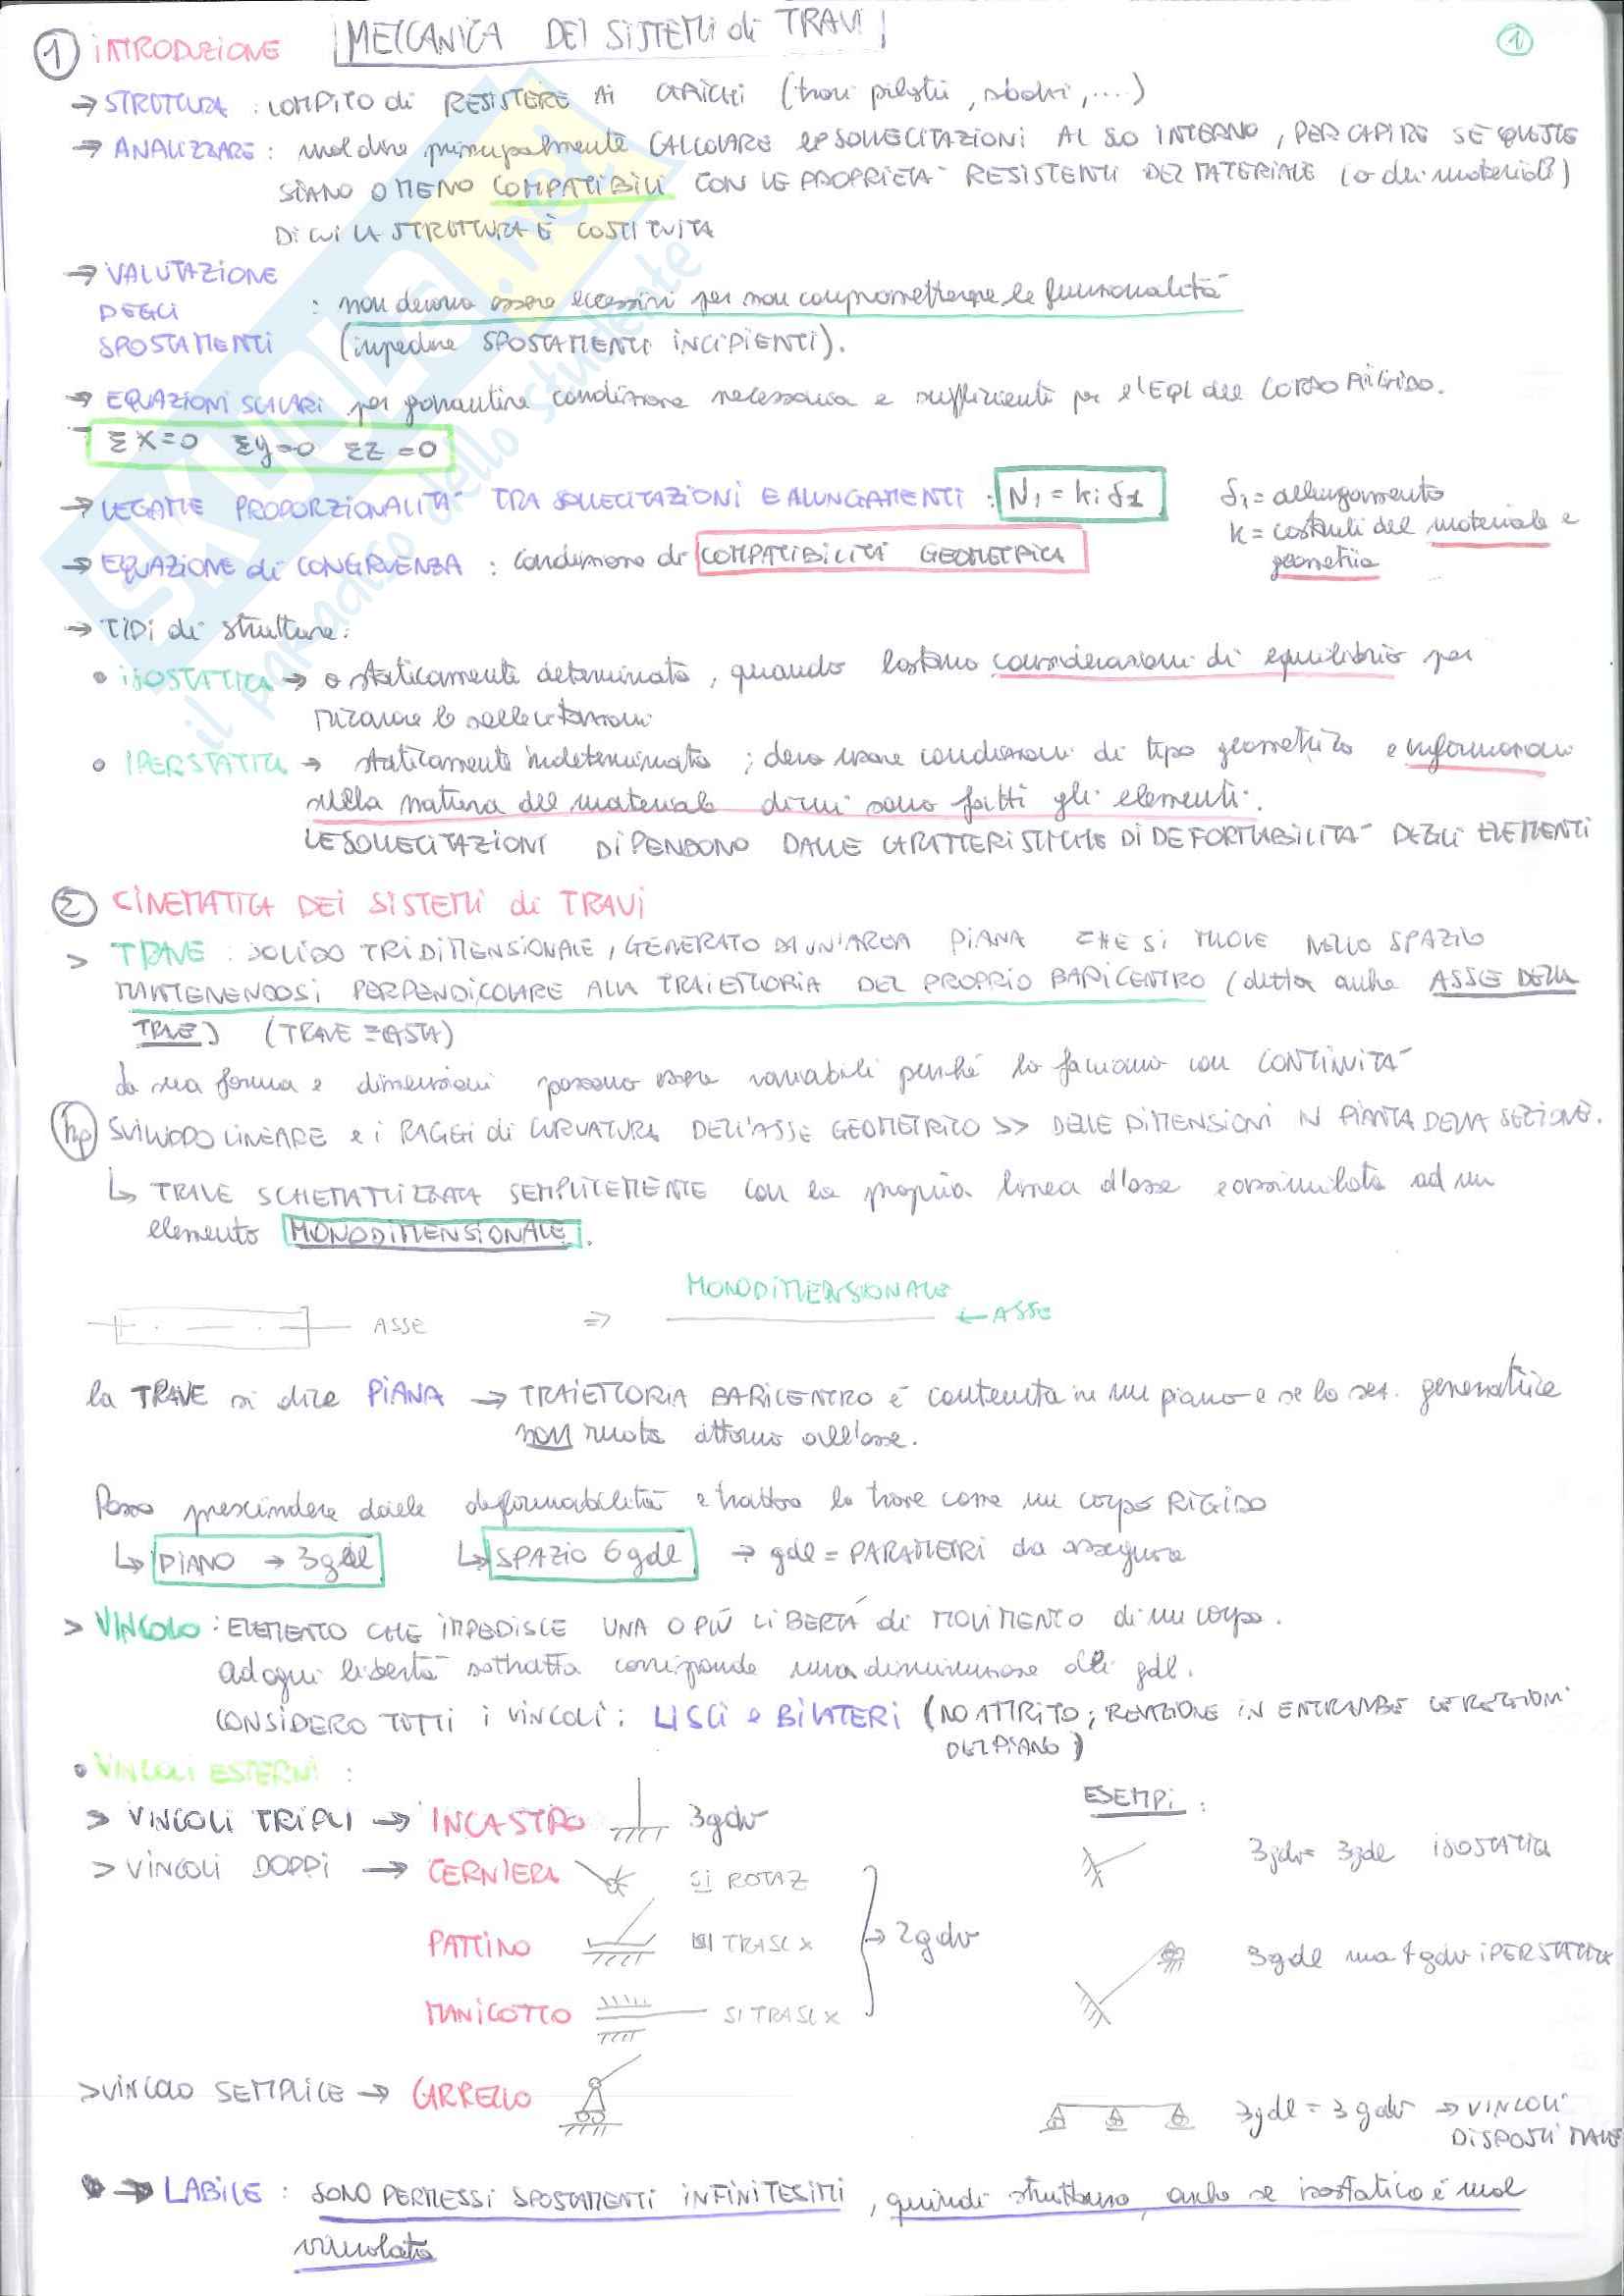 ① INTRODUZIONE MECCANICA DEI SISTEMI di TRAVI
1
→ STRUTTURA : COMPITO di RESISTERE AI CARICHI (travi pilastri, sbalzi, ....)
→ ANALIZZARE : vuol dire principalmente CALCOLARE le SOLLECITAZIONI AL SUO INTERNO, PER CAPIRE SE QUESTE
SIANO O MENO COMPATIBILI CON LE PROPRIETA' RESISTENTI DEL MATERIALE (o dei materiali)
DI CUI LA STRUTTURA È COSTITUITA
→ VALUTAZIONE
DEGLI : non devono essere eccessivi per non comprometterne le funzionalità
SPOSTAMENTI (impedire SPOSTAMENTI INCIPIENTI).
→ EQUAZIONI SCALARI per garantire condizione necessaria e sufficiente per l'EQL del CORPO RIGIDO.
ΣX=0 Σy=0 ΣZ=0
→ LEGAME PROPORZIONALITA' TRA SOLLECITAZIONI E ALLUNGAMENTI : N₁ = kiδ1 δ₁ = allungamento
k = costanti del materiale e
geometria
→ EQUAZIONE di CONGRUENZA : condizione di COMPATIBILITÀ GEOMETRICA
→ TIPI di strutture:
• ISOSTATICA → o staticamente determinata, quando bastano considerazioni di equilibrio per
ricavare le sollecitazioni
• IPERSTATICA → staticamente indeterminata ; devo usare condizioni di tipo geometrico e informazioni
sulla natura del materiale di cui sono fatti gli elementi.
LE SOLLECITAZIONI DIPENDONO DALLE CARATTERISTICHE DI DEFORMABILITA' DEGLI ELEMENTI
② CINEMATICA DEI SISTEMI di TRAVI
> TRAVE : SOLIDO TRIDIMENSIONALE, GENERATO DA UN'AREA PIANA CHE SI MUOVE NELLO SPAZIO
MANTENENDOSI PERPENDICOLARE ALLA TRAIETTORIA DEL PROPRIO BARICENTRO (detta anche ASSE DELLA
TRAVE) (TRAVE = ASTA)
La sua forma e dimensioni possono essere variabili perché lo facciano con CONTINUITA'
hp SVILUPPO LINEARE e i RAGGI di CURVATURA DELL'ASSE GEOMETRICO >> DELLE DIMENSIONI IN PIANTA DELLA SEZIONE.
↳ TRAVE SCHEMATIZZATA SEMPLICEMENTE con la propria linea d'asse e assimilata ad un
elemento MONODIMENSIONALE.
MONODIMENSIONALE
ASSE ⇒ ← ASSE
la TRAVE si dice PIANA → TRAIETTORIA BARICENTRO è contenuta in un piano e se la sez. generatrice
non ruota attorno all'asse.
Posso prescindere dalla deformabilità e tratto la trave come un corpo RIGIDO
↳ PIANO → 3gdl ↳ SPAZIO 6gdl → gdl = PARAMETRI da assegnare
> VINCOLO : ELEMENTO CHE IMPEDISCE UNA O PIÙ LIBERTÀ di MOVIMENTO di un corpo.
ad ogni libertà sottratta corrisponde una diminuzione di gdl.
CONSIDERO TUTTI i VINCOLI : LISCI e BILATERI (NO ATTRITO; REAZIONE IN ENTRAMBE LE REGIONI
DEL PIANO)
• VINCOLI ESTERNI :
> VINCOLI TRIPLI → INCASTRO 3gdv
> VINCOLI DOPPI → CERNIERA SI ROTAZ
PATTINO SI TRASL X → 2gdv
MANICOTTO SI TRASL X
>VINCOLO SEMPLICE → CARRELLO
ESEMPI :
3gdv = 3gdl ISOSTATICA
3gdl ma 4gdv IPERSTATICA
3gdl = 3gdv → VINCOLI
DISPOSTI MALE
→ LABILE : SONO PERMESSI SPOSTAMENTI INFINITESIMI, quindi struttura, anche se isostatica è mal
vincolata
SKUOLA.net
il paradiso dello studente